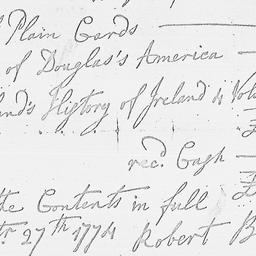 Plain Cards
of Douglas's America
History of Ireland 4 Vols
£
rec.d Cash
£
the Contents in full
27th 1774 Robert B